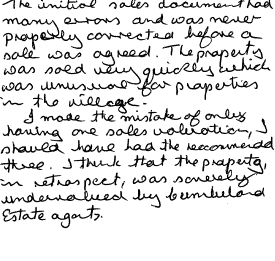 The initial sales document had
many errors and was never
properly corrected before a
sale was agreed. The property
was sold very quickly which
was unusual for properties
in the village.
I made the mistake of only
having one sales valuation, I
should have had the recommended
three. I think that the property,
in retrospect, was severely
undervalued by Cumberland
Estate agents.